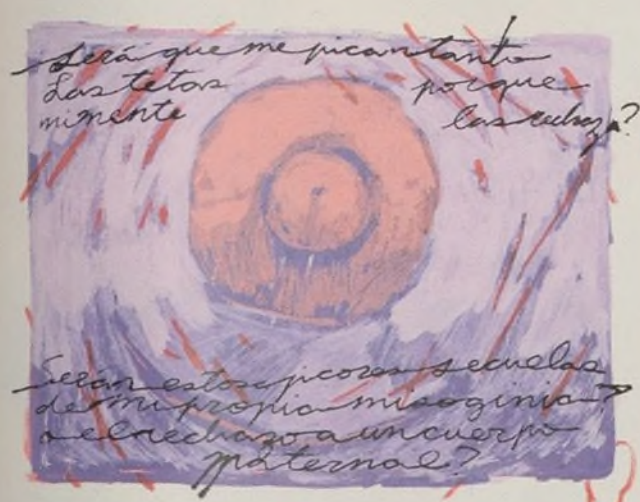 Será que me pican tanto
las tetas porque
mi mente las rechaza?
Serán estos picores secuelas
de mi propia misoginia?
o el rechazo a un cuerpo
paternal?